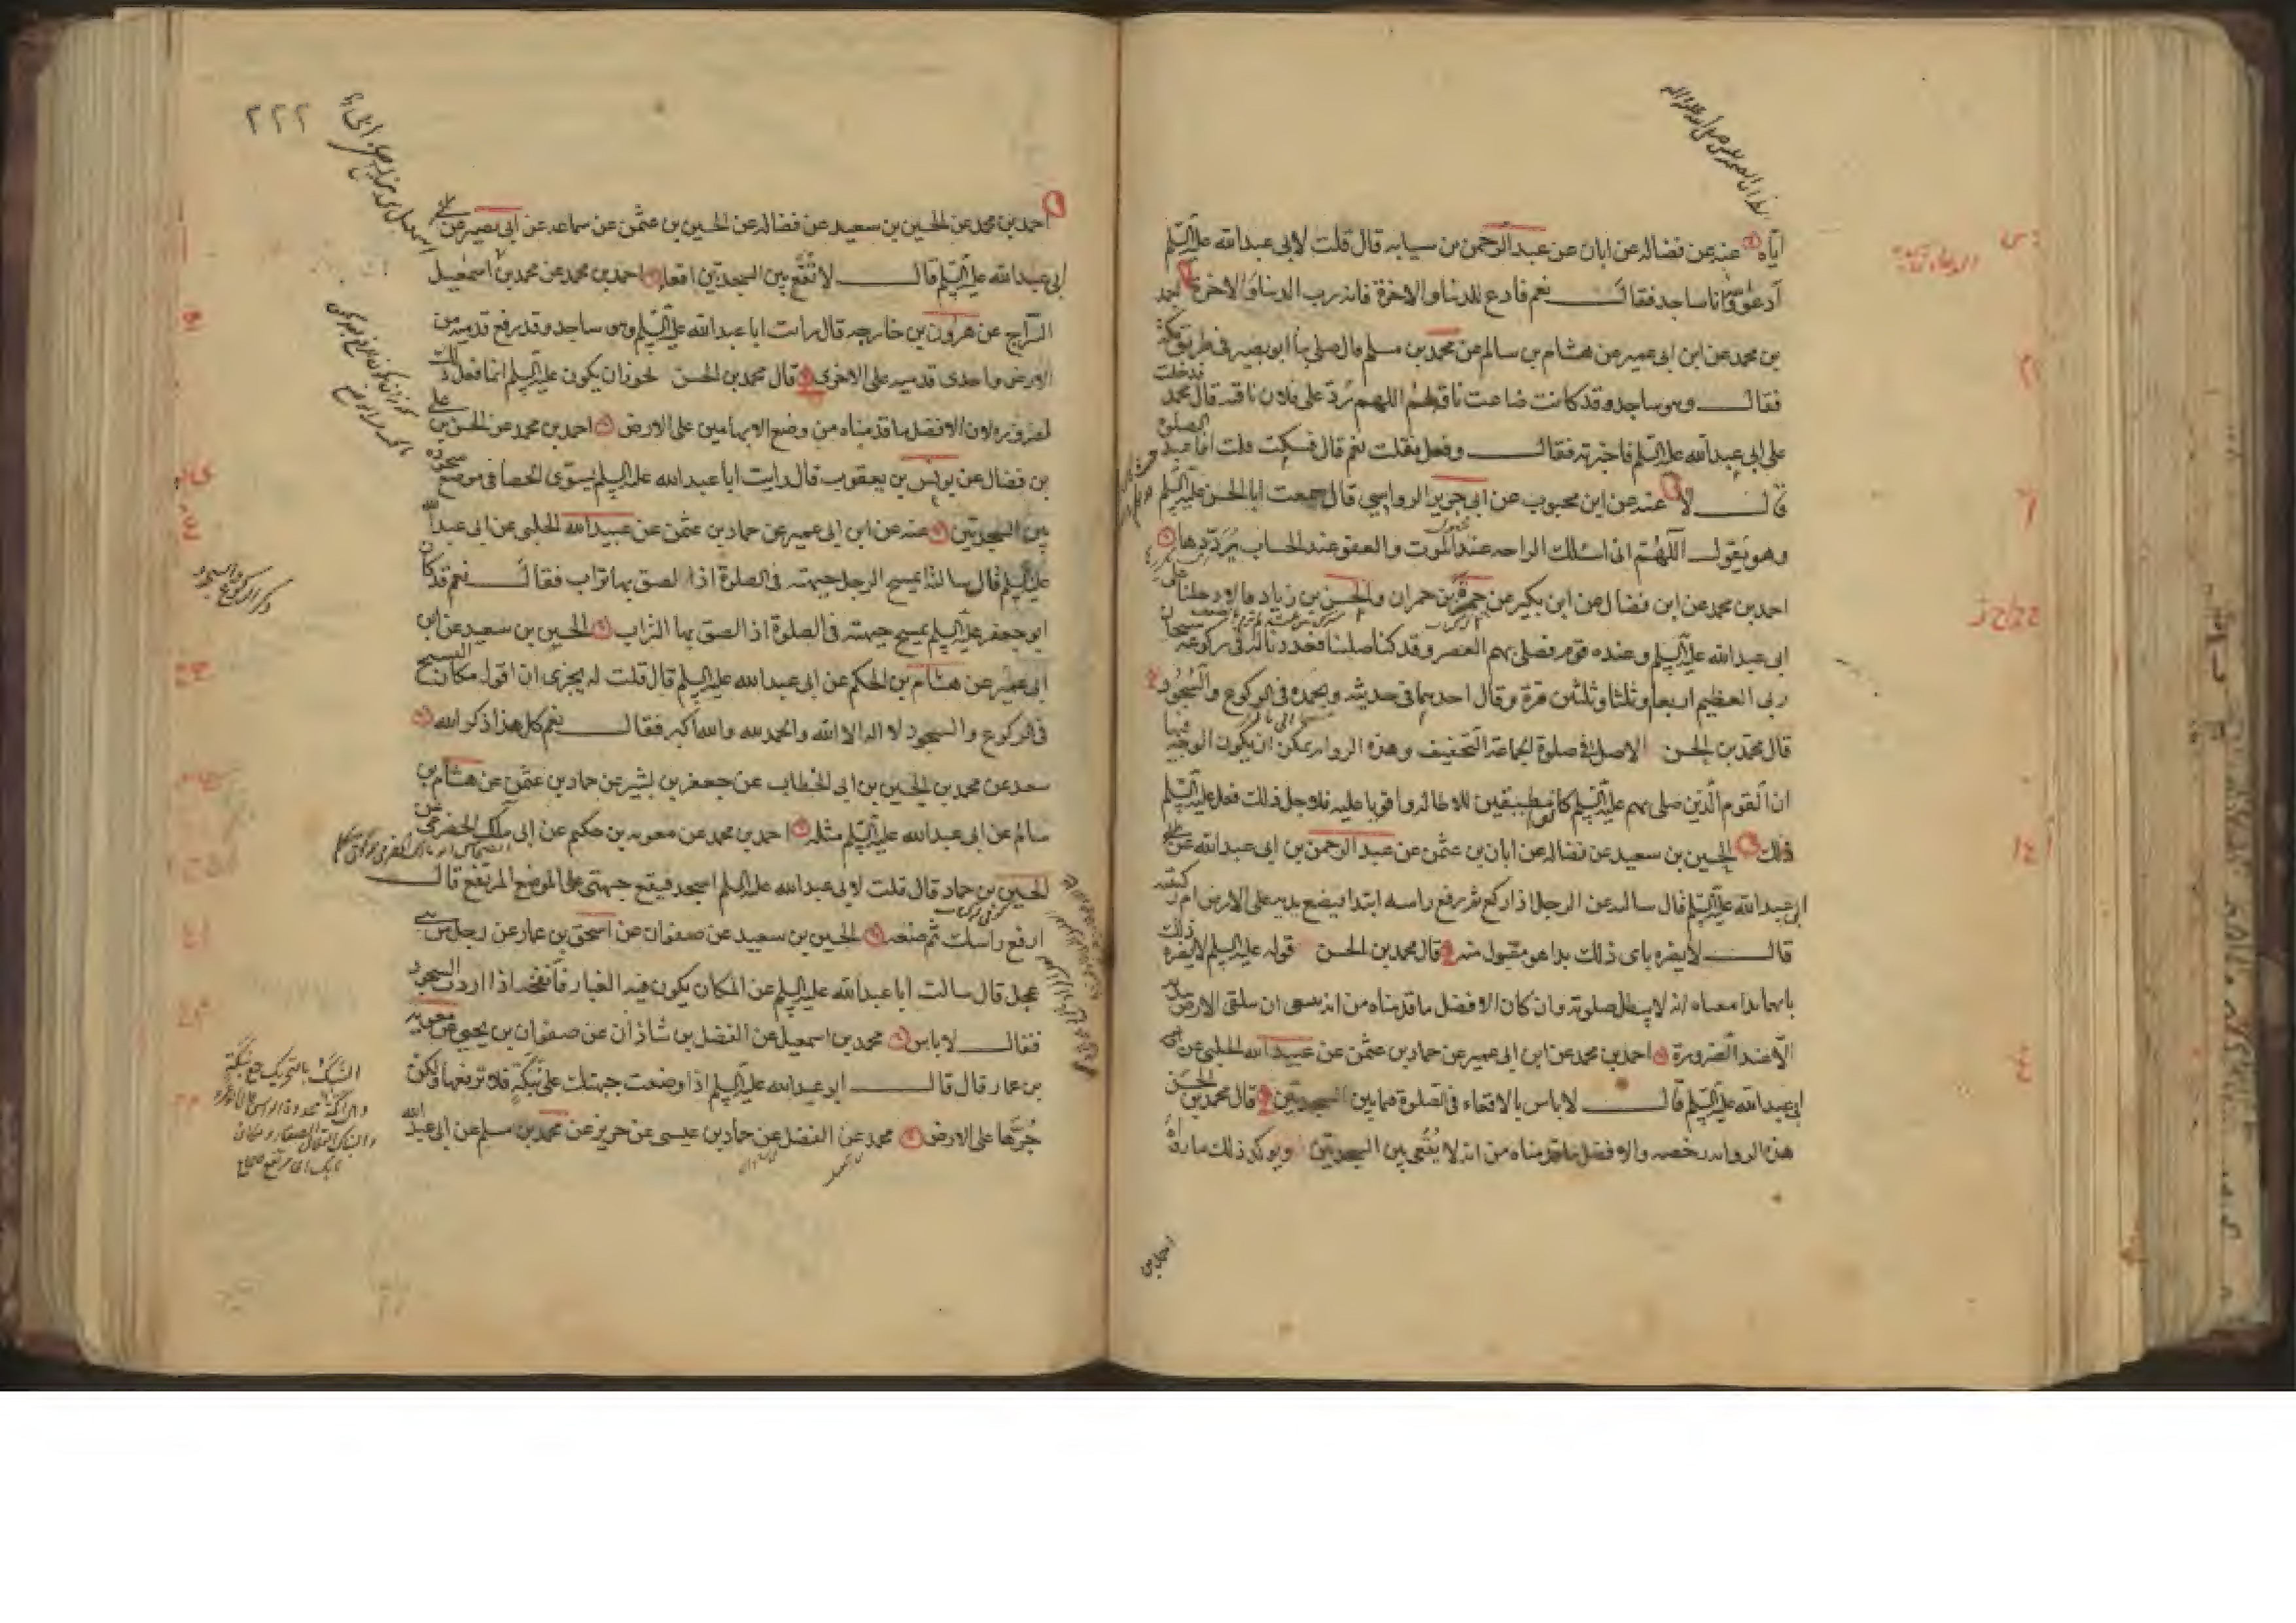 اياه عنه عن فضاله عن ابان عن عبد الرحمن بن سيابه قال قلت لابى عبد الله عليه السلم
ادعو وانا ساجد فقال نعم فادع للدنيا والاخرة فانه رب الدنيا والاخرة احمد
بن محمد عن ابن ابى عمير عن هشام بن سالم عن محمد بن مسلم قال صلى بنا ابو بصير فى طريق مكة
فقال وهو ساجد وقد كانت ضاعت ناقة لهم اللهم رد على فلان ناقته قال محمد فدخلت
على ابى عبد الله عليه السلم فاخبرته فقال وفعل فقلت نعم قال فسكت قلت افاعيد الصلوة
قال لا عنه عن ابن محبوب عن ابى جرير الرواسى قال سمعت ابا الحسن عليه السلم
وهو يقول اللهم انى اسئلك الراحه عند الموت والعفو عند الحساب يرددها
احمد بن محمد عن ابن فضال عن ابن بكير عن حمزة بن حمران والحسن بن زياد قالا دخلنا على
ابى عبد الله عليه السلم وعنده قوم فصلى بهم العصر وقد كنا صلينا فعددنا له فى ركوعه سبحان
ربى العظيم اربعا وثلثا وثلثين مرة وقال احدهما فى حديثه وبحمده فى الركوع والسجود
قال محمد بن الحسن الاصل فى صلوة الجماعة التخفيف وهذه الروايه يمكن ان يكون الوجه فيها
ان القوم الذين صلى بهم عليه السلم كانوا مطيقين للاطاله واقويا عليه فلاجل ذلك فعل عليه السلم
ذلك الحسين بن سعيد عن فضاله عن ابان بن عثمن عن عبد الرحمن بن ابى عبد الله عن
ابى عبد الله عليه السلم قال سالته عن الرجل اذا ركع ثم رفع راسه ايبتدا فيضع يديه على الارض ام ركبتيه
قال لا يضره باى ذلك بدا هو مقبول منه قال محمد بن الحسن قوله عليه السلم لا يضره ذلك
بايهما بدا معناه انه لا يبطل صلوته وان كان الافضل ما قدمناه من انه ينبغى ان يتلقى الارض بيديه
الا عند الضرورة احمد بن محمد عن ابن ابى عمير عن حماد بن عثمن عن عبيد الله الحلبى عن
ابى عبد الله عليه السلم قال لا باس بالاقعاء فى الصلوة فيما بين السجدتين قال محمد بن الحسن
هذه الروايه رخصه والافضل ما قدمناه من انه لا يقعى بين السجدتين ويوكد ذلك ما رواه
احمد بن
٢٢٢
احمد بن محمد عن الحسين بن سعيد عن فضاله عن الحسين بن عثمن عن سماعه عن ابى بصير عن
ابى عبد الله عليه السلم قال لا تقع بين السجدتين اقعاء احمد بن محمد عن محمد بن اسمعيل
السراج عن هرون بن خارجه قال رايت ابا عبد الله عليه السلم وهو ساجد وقد رفع قدميه من
الارض واحدى قدميه على الاخرى قال محمد بن الحسن يجوز ان يكون عليه السلم انما فعل ذلك
لضروره لان الافضل ما قدمناه من وضع الابهامين على الارض احمد بن محمد عن الحسن بن على
بن فضال عن يونس بن يعقوب قال رايت ابا عبد الله عليه السلم يسوى الحصا فى موضع سجوده
بين السجدتين عنه عن ابن ابى عمير عن حماد بن عثمن عن عبيد الله الحلبى عن ابى عبد الله
عليه السلم قال سالته ايمسح الرجل جبهته فى الصلوة اذا لصق بها تراب فقال نعم قد كان
ابو جعفر عليه السلم يمسح جبهته فى الصلوة اذا لصق بها التراب الحسين بن سعيد عن ابن
ابى عمير عن هشام بن الحكم عن ابى عبد الله عليه السلم قال قلت له يجزى ان اقول مكان التسبيح
فى الركوع والسجود لا اله الا الله والحمد لله والله اكبر فقال نعم كل هذا ذكر الله
سعد عن محمد بن الحسين بن ابى الخطاب عن جعفر بن بشير عن حماد بن عثمن عن هشام بن
سالم عن ابى عبد الله عليه السلم مثله احمد بن محمد عن معويه بن حكيم عن ابى ملك الحضرمى عن
الحسين بن حماد قال قلت لابى عبد الله عليه السلم اسجد فيقع جبهتى على الموضع المرتفع قال
ارفع راسك ثم ضعه الحسين بن سعيد عن صفوان عن اسحق بن عمار عن رجل من بنى
عجل قال سالت ابا عبد الله عليه السلم عن المكان يكون فيه الغبار فانفخه اذا اردت السجود
فقال لا باس محمد بن اسمعيل عن الفضل بن شاذان عن صفوان بن يحيى عن معويه
بن عمار قال قال ابو عبد الله عليه السلم اذا وضعت جبهتك على نبكة فلا ترفعها ولكن
جرها على الارض محمد عن الفضل عن حماد بن عيسى عن حريز عن محمد بن مسلم عن ابى عبد الله
ذكر الركوع والسجود
النبك بالتحريك جمع نبكة